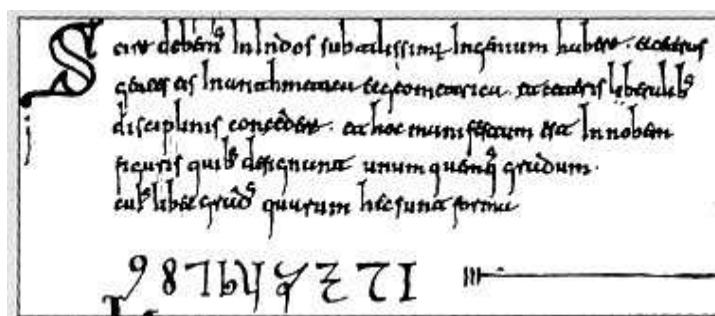 Scire debem⁹ In Indos subtilissimũ Ingenium habere · et ceteras
gẽtes eis In arithmetica et geometrica · et ceteris liberalib⁹
disciplinis concedere · et hoc manifestum est In nobem
figuris quib⁹ designant unum quemq⁹ gradum ·
cui⁹libet grad⁹ quarum hec sunt forma
9 8 7 6 5 4 3 2 1